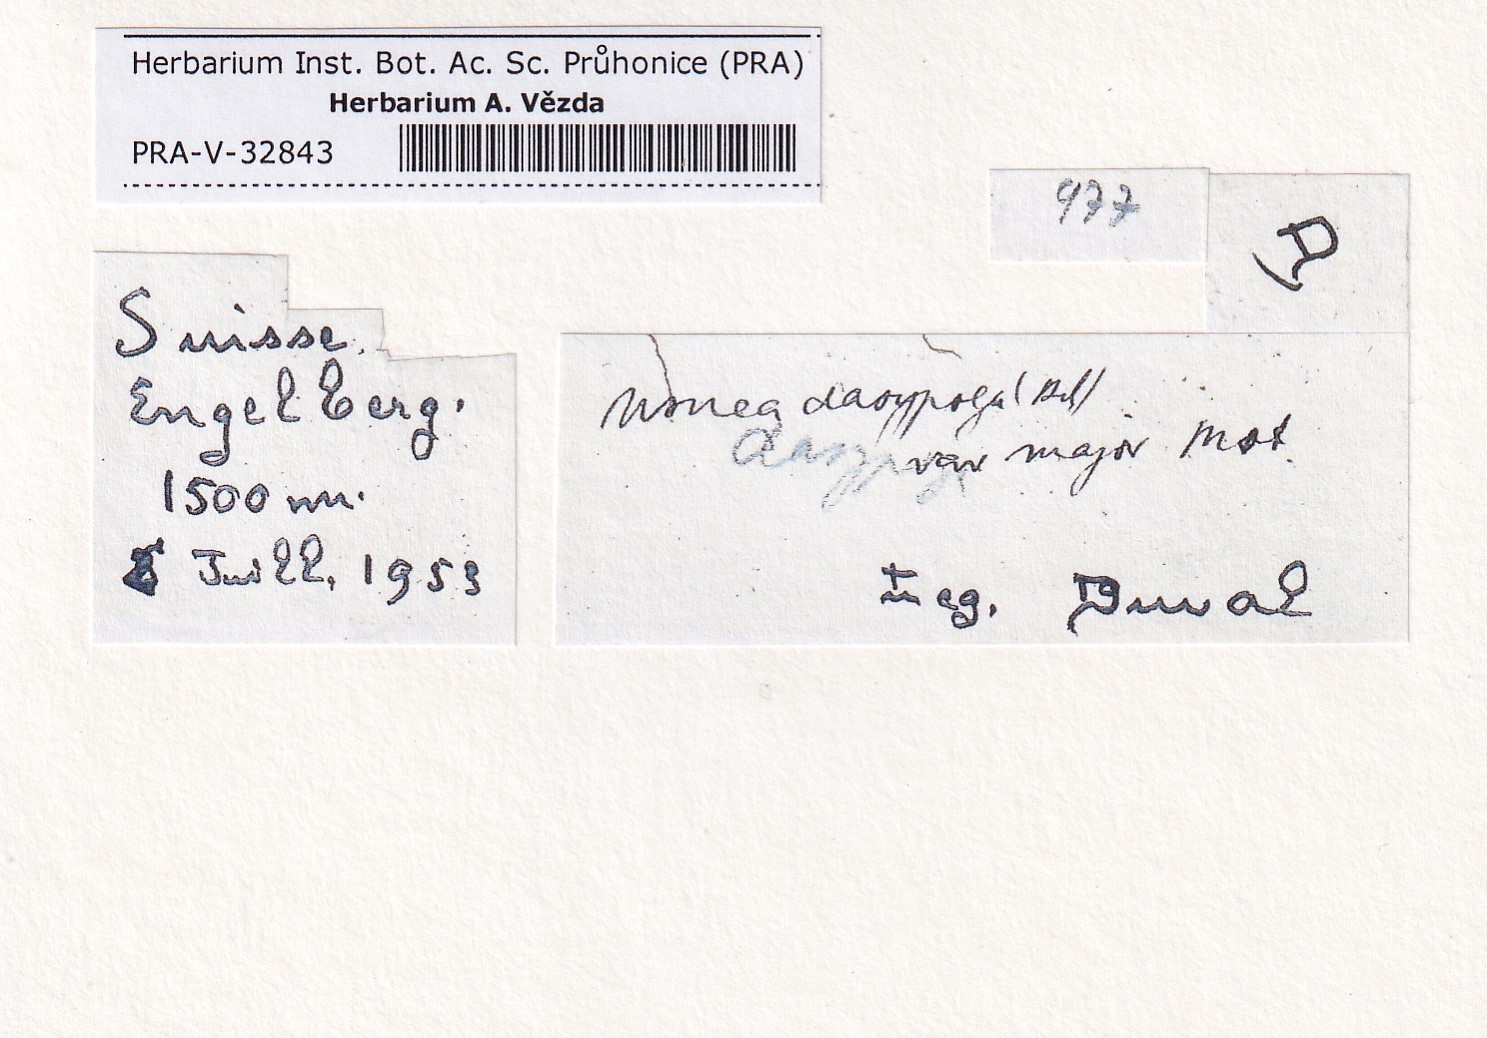 Herbarium Inst. Bot. Ac. Sc. Průhonice (PRA)
Herbarium A. Vězda
PRA-V-32843
977
D
Suisse.
Engelberg.
1500 m.
Juill. 1953
Usnea dasypoga (Ach)
dasypoga
var major Mot.
Leg. Duval